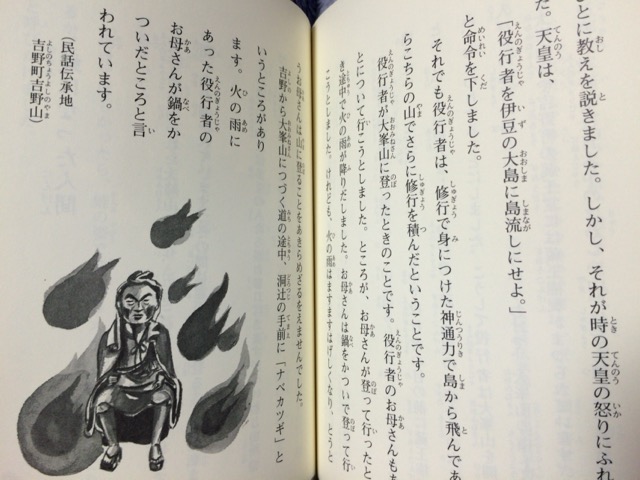 とに教えを説きました。しかし、それが時の天皇の怒りにふれ
た。天皇は、
「役行者を伊豆の大島に島流しにせよ。」
と命令を下しました。
それでも役行者は、修行で身につけた神通力で島から飛んであ
らこちらの山でさらに修行を積んだということです。
役行者が大峯山に登ったときのことです。役行者のお母さんもあ
とについて行こうとしました。ところが、お母さんが登って行ったと
き途中で火の雨が降りだしました。お母さんは鍋をかついで登って行
こうとしました。けれども、火の雨はますますはげしくなり、とうと
うお母さんは山に登ることをあきらめざるをえませんでした。
吉野から大峯山につづく道の途中、洞辻の手前に「ナベカツギ」と
いうところがあり
ます。火の雨に
あった役行者の
お母さんが鍋をか
ついだところと言
われています。
(民話伝承地
吉野町吉野山)